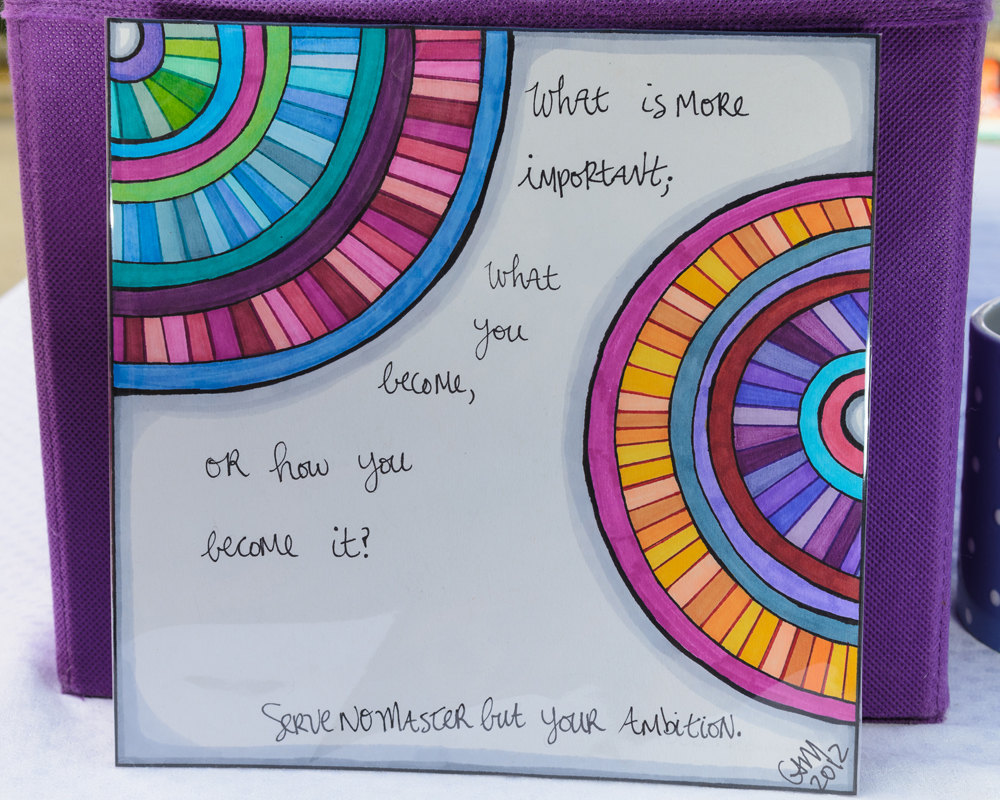 What is more
important;
what
you
become,
or how you
become it?
Serve no master but your ambition.
2012